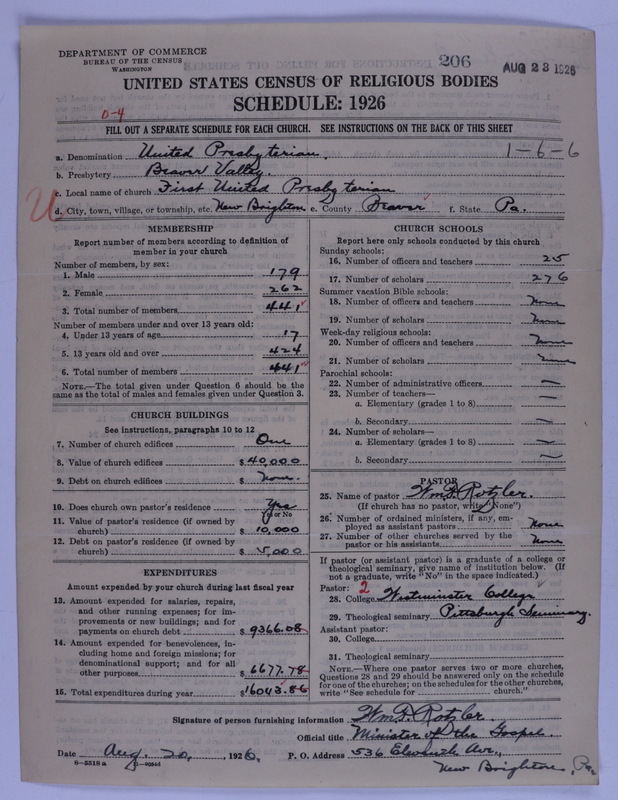 DEPARTMENT OF COMMERCE
BUREAU OF THE CENSUS
WASHINGTON
206
AUG 23 1926
UNITED STATES CENSUS OF RELIGIOUS BODIES
SCHEDULE: 1926
0-4
FILL OUT A SEPARATE SCHEDULE FOR EACH CHURCH. SEE INSTRUCTIONS ON THE BACK OF THIS SHEET
a. Denomination United Presbyterian.
1-6-6
b. Presbytery Beaver Valley.
c. Local name of church First United Presbyterian
d. City, town, village, or township, etc. New Brighton e. County Beaver f. State Pa.
MEMBERSHIP
Report number of members according to definition of
member in your church
Number of members, by sex:
1. Male 179
2. Female 262
3. Total number of members 441
Number of members under and over 13 years old:
4. Under 13 years of age 17
5. 13 years old and over 424
6. Total number of members 441
NOTE.—The total given under Question 6 should be
same as the total of males and females given under Question 3.
CHURCH BUILDINGS
See instructions, paragraphs 10 to 12
7. Number of church edifices One
8. Value of church edifices $ 40,000
9. Debt on church edifices $ None.
10. Does church own pastor's residence Yes
Yes or No
11. Value of pastor's residence (if owned by
church) $ 10,000
12. Debt on pastor's residence (if owned by
church) $ 5,000
EXPENDITURES
Amount expended by your church during last fiscal year
13. Amount expended for salaries, repairs,
and other running expenses; for im-
provements or new buildings; and for
payments on church debt $ 9366.08
14. Amount expended for benevolences, in-
cluding home and foreign missions; for
denominational support; and for all
other purposes $ 6677.78
15. Total expenditures during year $ 16043.86
CHURCH SCHOOLS
Report here only schools conducted by this church
Sunday schools:
16. Number of officers and teachers 25
17. Number of scholars 276
Summer vacation Bible schools:
18. Number of officers and teachers None
19. Number of scholars None
Week-day religious schools:
20. Number of officers and teachers None
21. Number of scholars None
Parochial schools:
22. Number of administrative officers —
23. Number of teachers—
a. Elementary (grades 1 to 8) —
b. Secondary —
24. Number of scholars—
a. Elementary (grades 1 to 8) —
b. Secondary —
PASTOR
25. Name of pastor Wm. F. Rotzler.
(If church has no pastor, write "None")
26. Number of ordained ministers, if any, em-
ployed as assistant pastors None
27. Number of other churches served by the
pastor or his assistants None
If pastor (or assistant pastor) is a graduate of a college or
theological seminary, give name of institution below. (If
not a graduate, write "No" in the space indicated.)
Pastor: 2
28. College Westminster College
29. Theological seminary Pittsburgh Seminary.
Assistant pastor:
30. College
31. Theological seminary
NOTE.—Where one pastor serves two or more churches,
Questions 28 and 29 should be answered only on the schedule
for one of the churches; on the schedules for the other churches,
write "See schedule for church."
Signature of person furnishing information Wm. F. Rotzler
Official title Minister of the Gospel.
Date Aug. 20, 1926. P. O. Address 536 Ave.,
8-5518 a New Brighton, Pa.